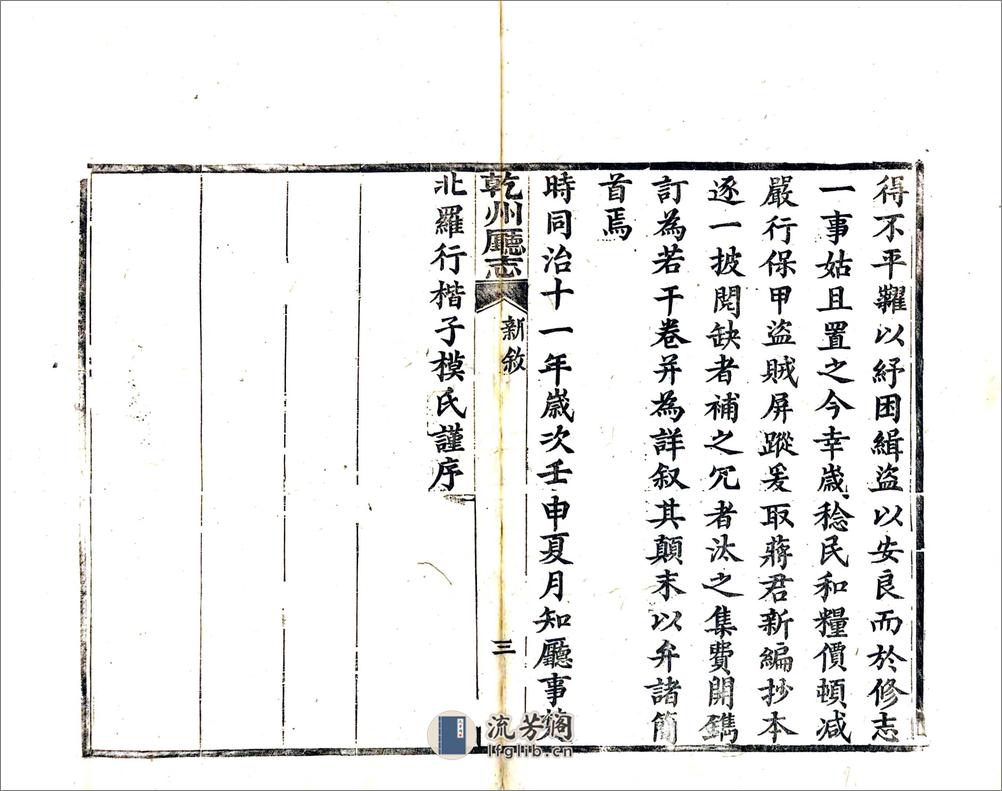 得不平糶以紓困緝盜以安良而於修志
一事姑且置之今幸歲稔民和糧價頓减
嚴行保甲盜賊屏蹤爰取蔣君新編抄本
逐一披閱缺者補之冗者汰之集費開鐫
訂為若干卷并為詳叙其顛末以弁諸簡
首焉
時同治十一年歲次壬申夏月知廳事
乾州廳志
新敘
三
北羅行楷子模氏謹序
流芳阁
lfglib.cn